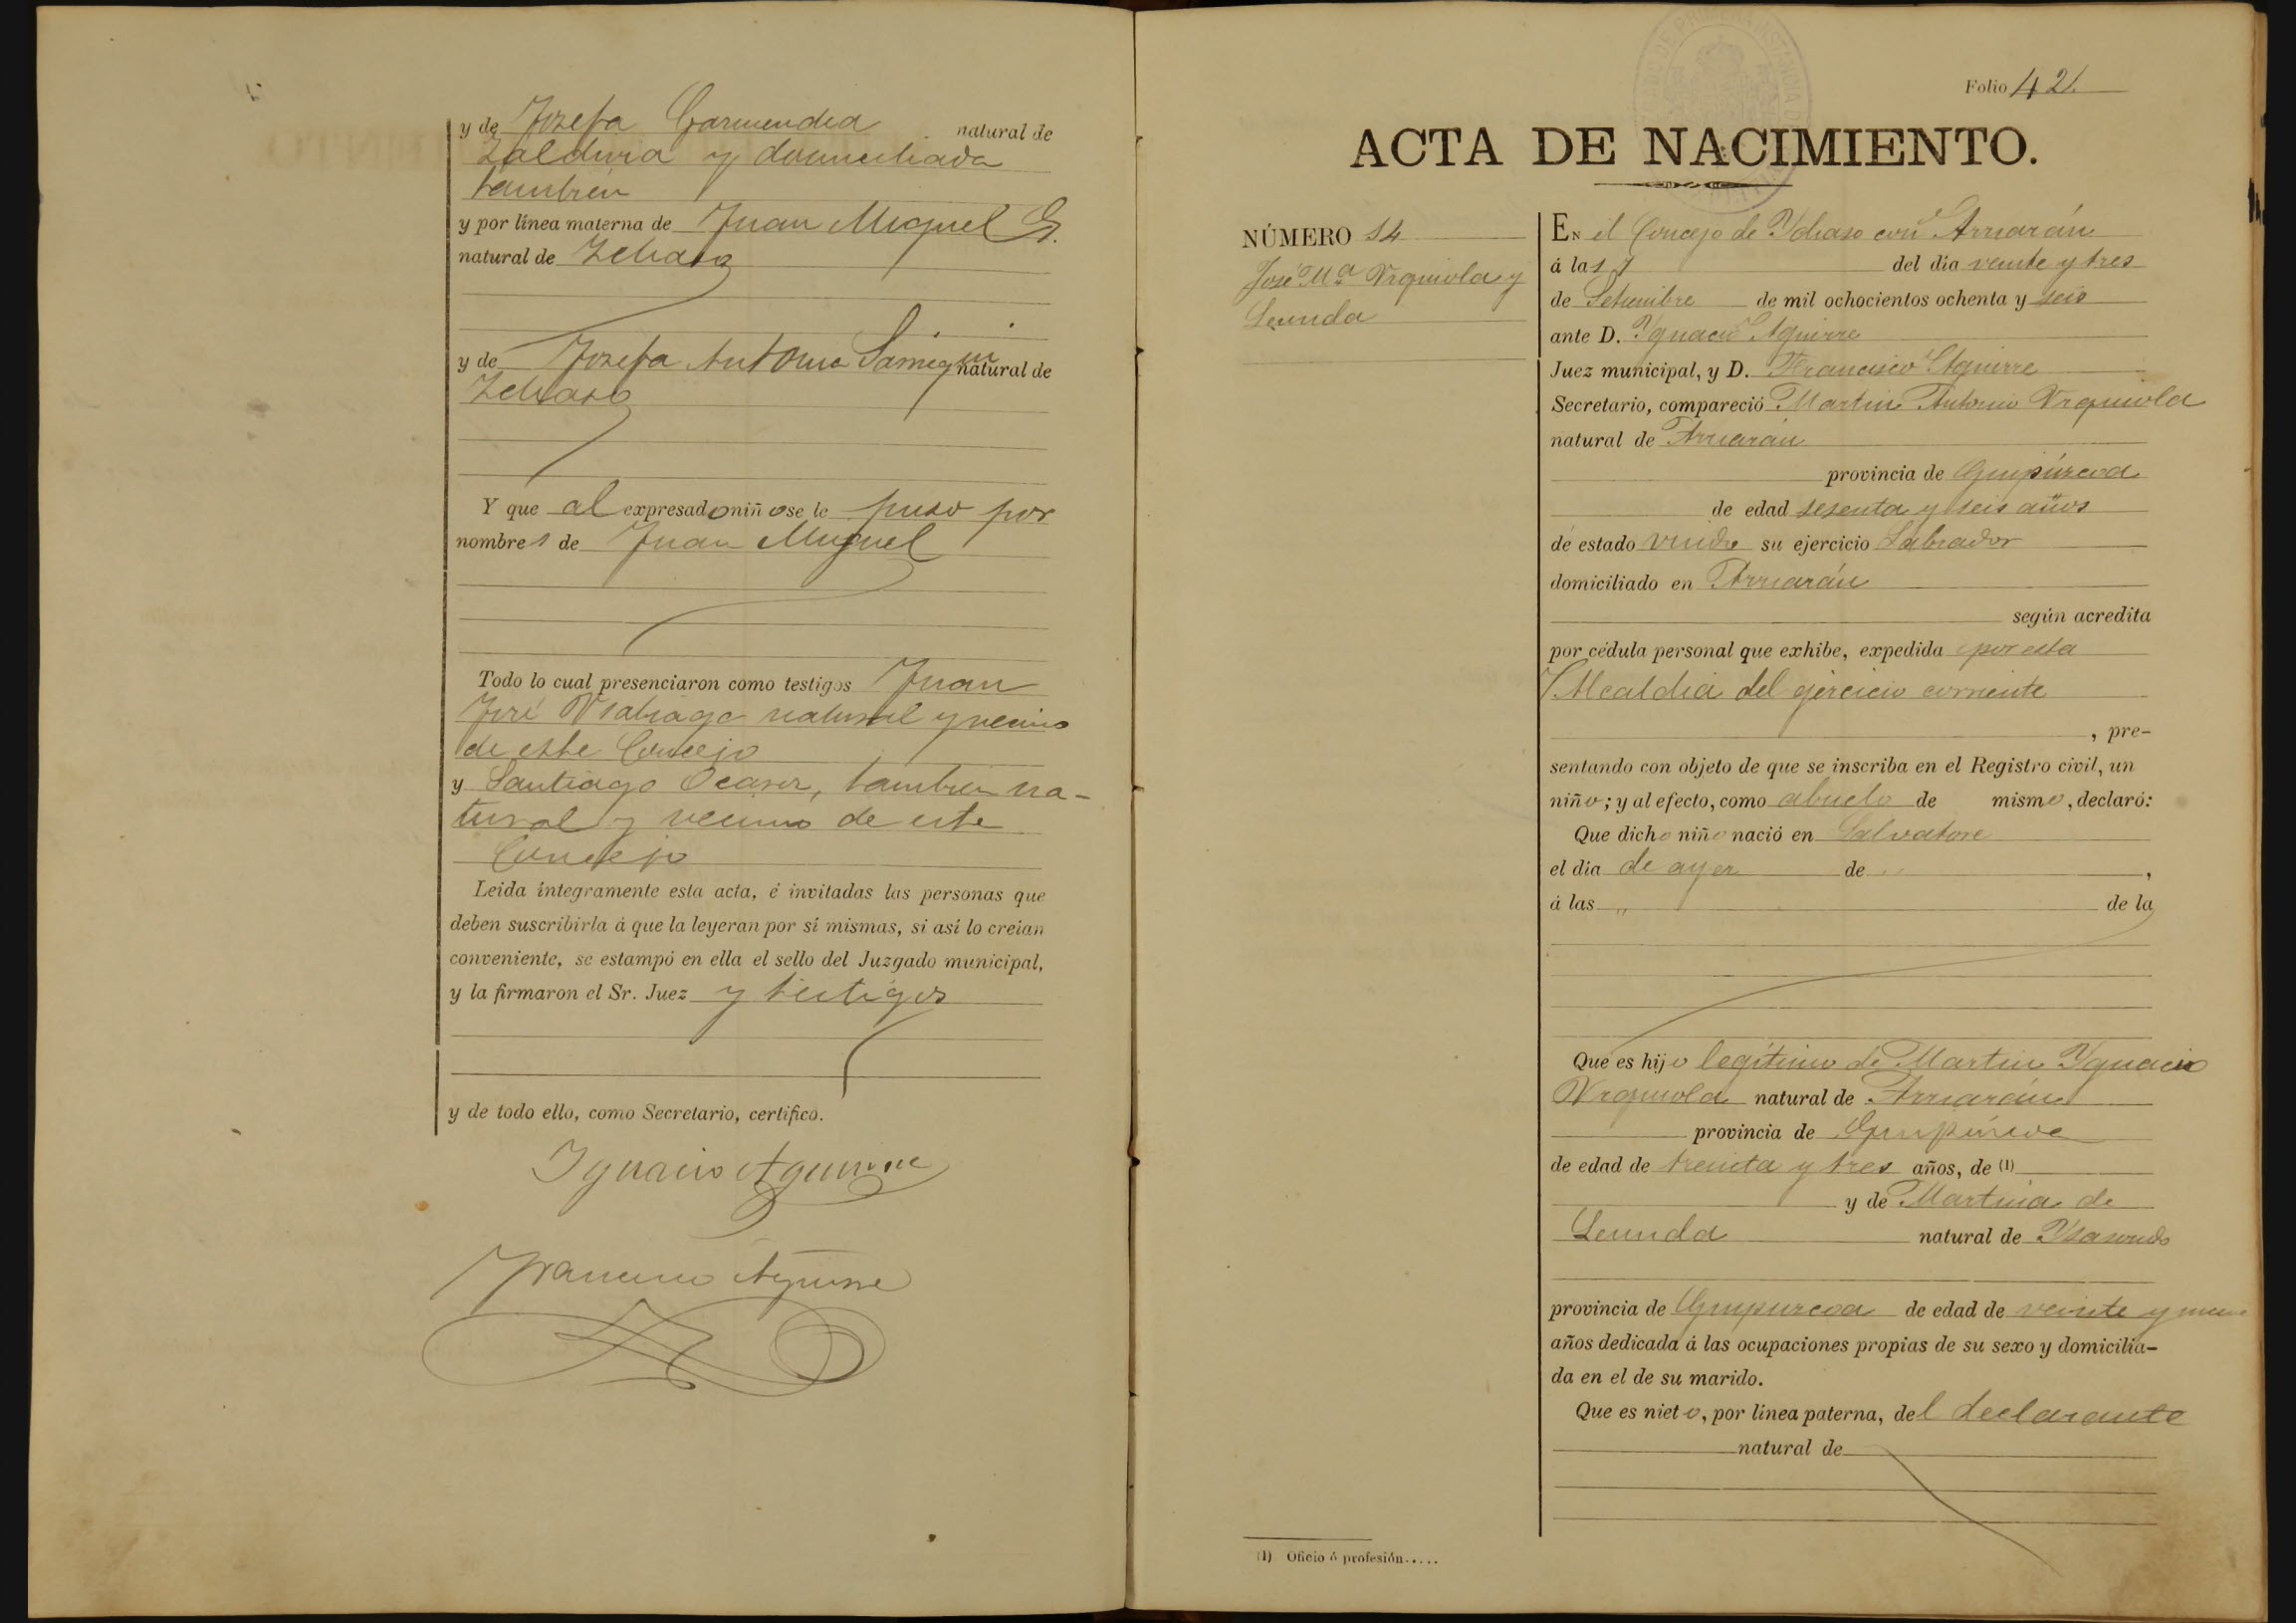 y de Josefa Garmendia natural de
Zaldivia y domiciliada
tambien
y por línea materna de Juan Miguel G.
natural de Ichaso
y de Josefa Antonia natural de
Ichaso
Y que al expresado niño se le puso por
nombres de Juan Miguel
Todo lo cual presenciaron como testigos Juan
José natural y vecino
de este Concejo
y Santiago tambien na-
tural y vecino de este
Concejo
Leida íntegramente esta acta, é invitadas las personas que
deben suscribirla á que la leyeran por sí mismas, si así lo creían
conveniente, se estampó en ella el sello del Juzgado municipal,
y la firmaron el Sr. Juez y testigos
y de todo ello, como Secretario, certifico.
Ygnacio Aguirre
Francisco Aguirre
Folio 42
ACTA DE NACIMIENTO.
NÚMERO 14
José Mª Urquiola y
Leunda
EN el Concejo de Ychaso con Arriarán
á las del día veinte y tres
de Setiembre de mil ochocientos ochenta y seis
ante D. Ygnacio Aguirre
Juez municipal, y D. Francisco Aguirre
Secretario, compareció Martin Antonio Urquiola
natural de Arriarán
provincia de Guipúzcoa
de edad sesenta y seis años
de estado viudo su ejercicio Labrador
domiciliado en Arriarán
según acredita
por cédula personal que exhibe, expedida por esta
Alcaldia del ejercicio corriente
, pre-
sentando con objeto de que se inscriba en el Registro civil, un
niño; y al efecto, como abuelo de mismo, declaró:
Que dicho niño nació en Salvatore
el dia de ayer de "
á las " de la
Que es hijo legítimo de Martin Ygnacio
Urquiola natural de Arriarán
provincia de Guipúzcoa
de edad de treinta y tres años, de (1)
y de Martina de
Leunda natural de Ysasondo
provincia de Guipuzcoa de edad de veinte y nueve
años dedicada á las ocupaciones propias de su sexo y domicilia-
da en el de su marido.
Que es nieto, por línea paterna, del declarante
natural de
(1) Oficio ó profesión.....